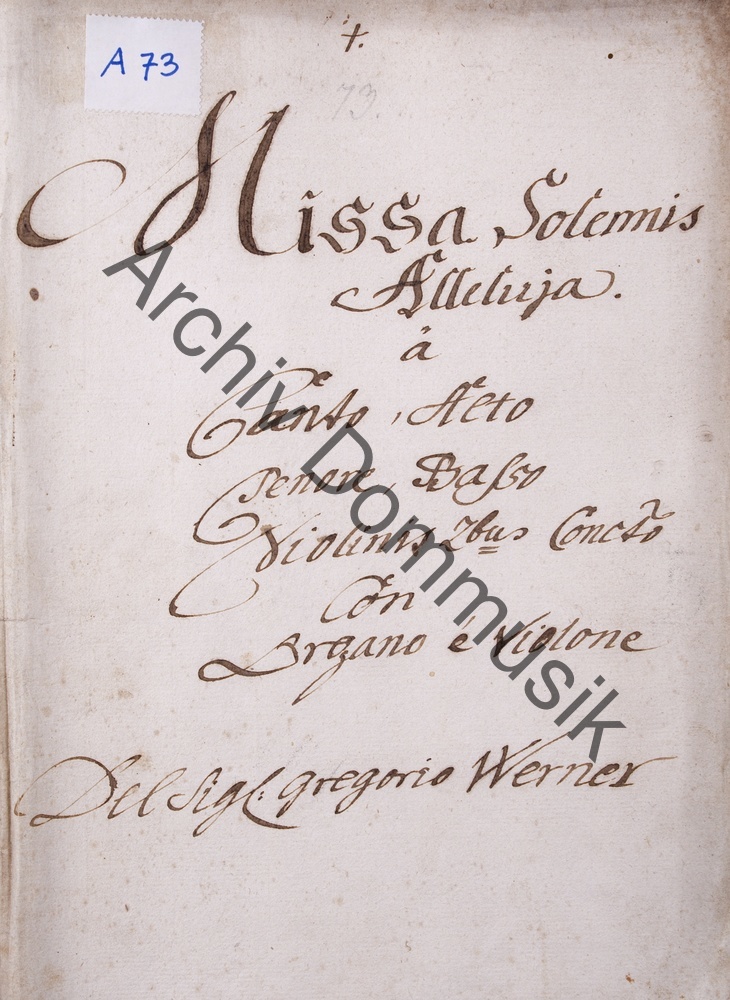 A 73
+.
73.
Missa Solemnis
Alleluja.
á
Canto, Alto
Tenore, Basso
Violinis 2bus Conc:to
Con
Organo è Violone
Del Sigl: Gregorio Werner
Archiv Dommusik